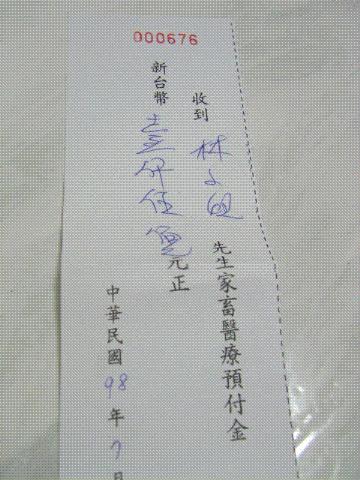 000676
收到 林 先生家畜醫療預付金
新台幣 壹仟伍 元正
中華民國 98 年 7 月